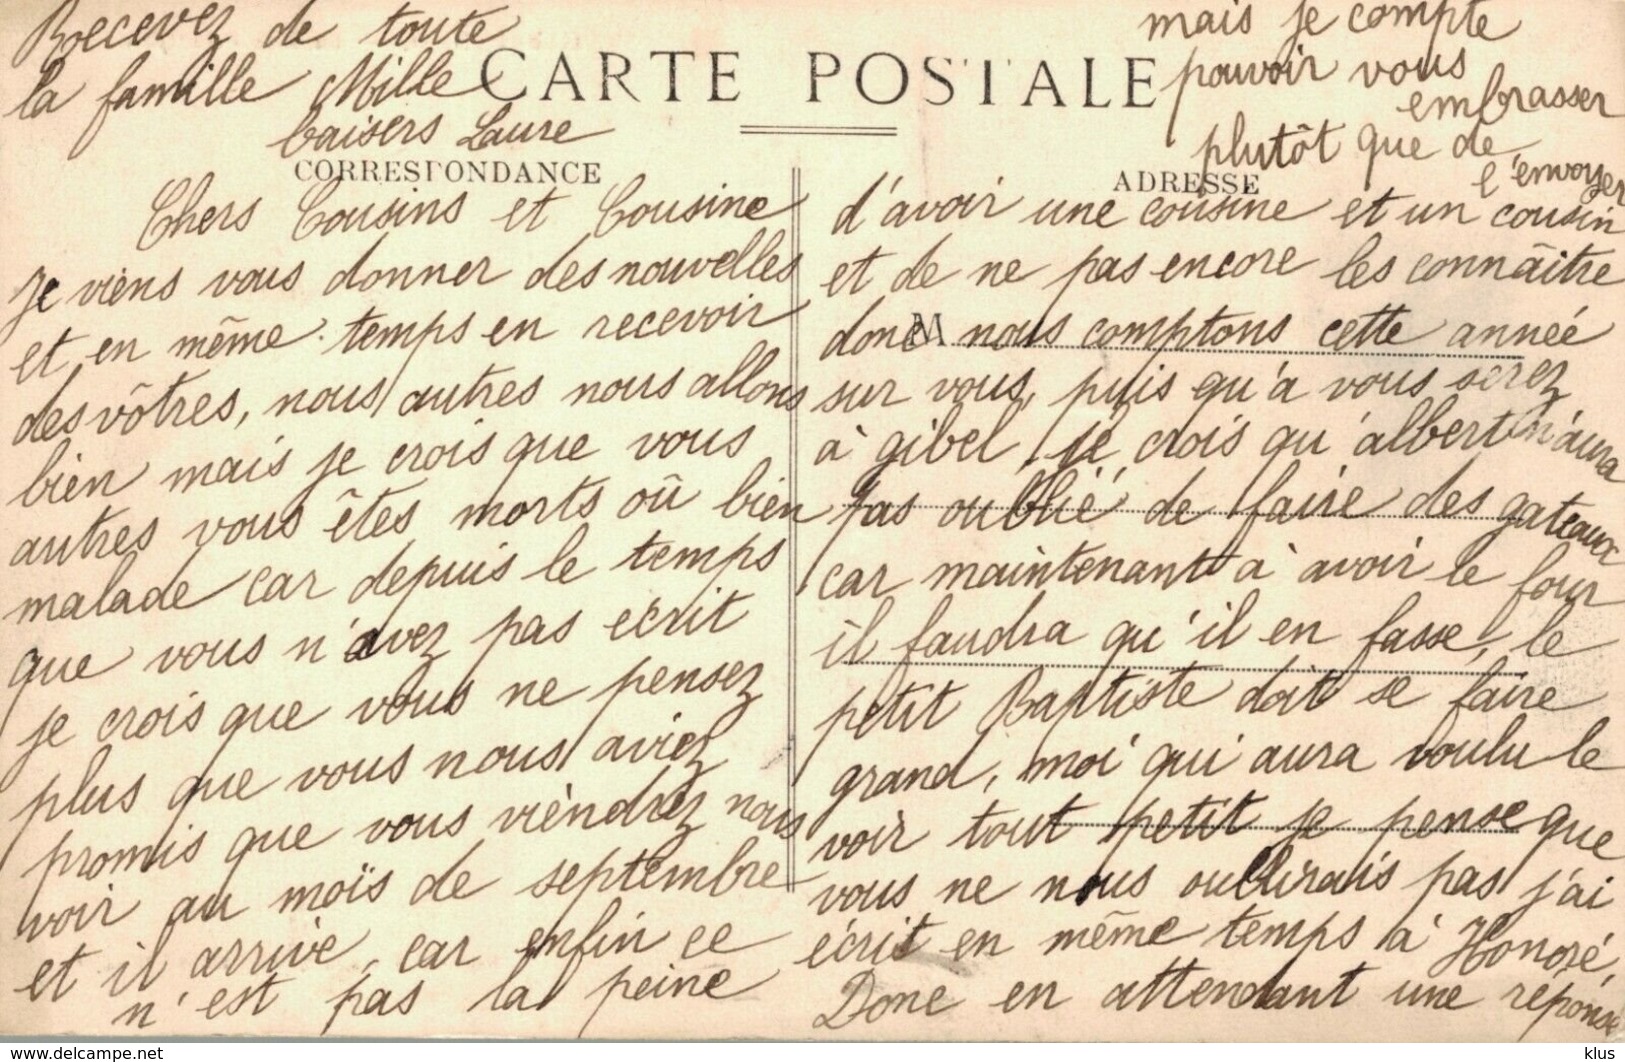 CARTE POSTALE
CORRESPONDANCE
Chers Cousins et Cousine
Je viens vous donner des nouvelles
et en même temps en recevoir
des vôtres, nous autres nous allons
bien mais je crois que vous
autres vous êtes morts où bien
malade car depuis le temps
que vous n'avez pas écrit
je crois que vous ne pensez
plus que vous nous aviez
promis que vous viendrez nous
voir au moïs de septembre
et il arrive, car enfin ce
n'est pas la peine
ADRESSE
M
d'avoir une cousine et un cousin
et de ne pas encore les connaître
donc nous comptons cette année
sur vous, puis qu'a vous serez
à gibel, je crois qu'albert n'aura
pas oublié de faire des gateaux
car maintenant à avoir le four
il faudra qu'il en fasse, le
petit Baptiste doit se faire
grand, moi qui aura voulu le
voir tout petit je pense que
vous ne nous oublirais pas j'ai
écrit en même temps à Honoré,
Donc en attendant une réponse
mais je compte
pouvoir vous
embrasser
plutôt que de
l'envoyer
Recevez de toute
la famille Mille
baisers Laure
www.delcampe.net
klus